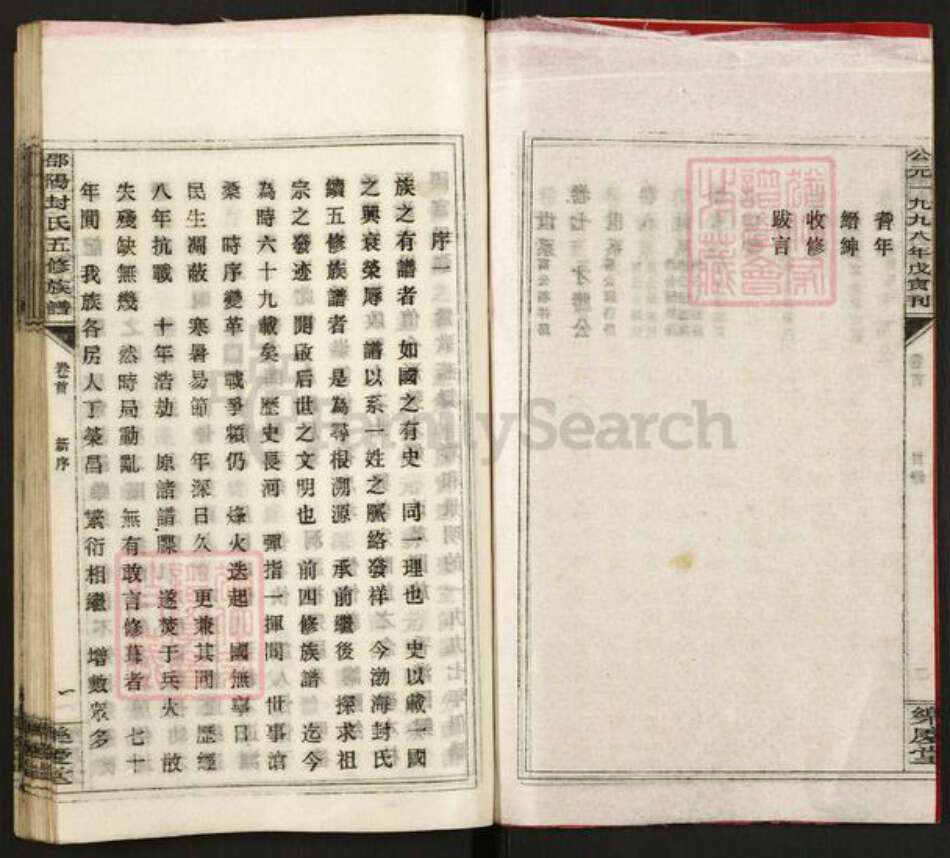 公元一九九八年戊寅刊
卷首
目錄
二
樂慶堂
耆年
縉紳
收修
跋言
序一
族之有譜者 如國之有史 同一理也 史以載一國
之興衰榮辱 譜以系一姓之脈絡發祥 今渤海封氏
續五修族譜者 是為尋根溯源 承前繼後 探求祖
宗之發迹 開啟后世之文明也 前四修族譜 迄今
為時六十九載矣 歷史長河 彈指一揮間 世事滄
桑 時序變革 戰爭頻仍 烽火迭起 國無寧日
民生凋蔽 寒暑易節 年深日久 更兼其間 歷經
八年抗戰 十年浩劫 原諸譜牒 遂焚于兵火 散
失殘缺無幾 然時局動亂 無有敢言修葺者 七十
年間 我族各房人丁榮昌 繁衍相繼 增數衆多
邵陽封氏五修族譜
卷首
新序
一
FamilySearch